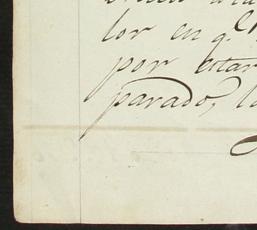 lor en q.
por estar
parado, la